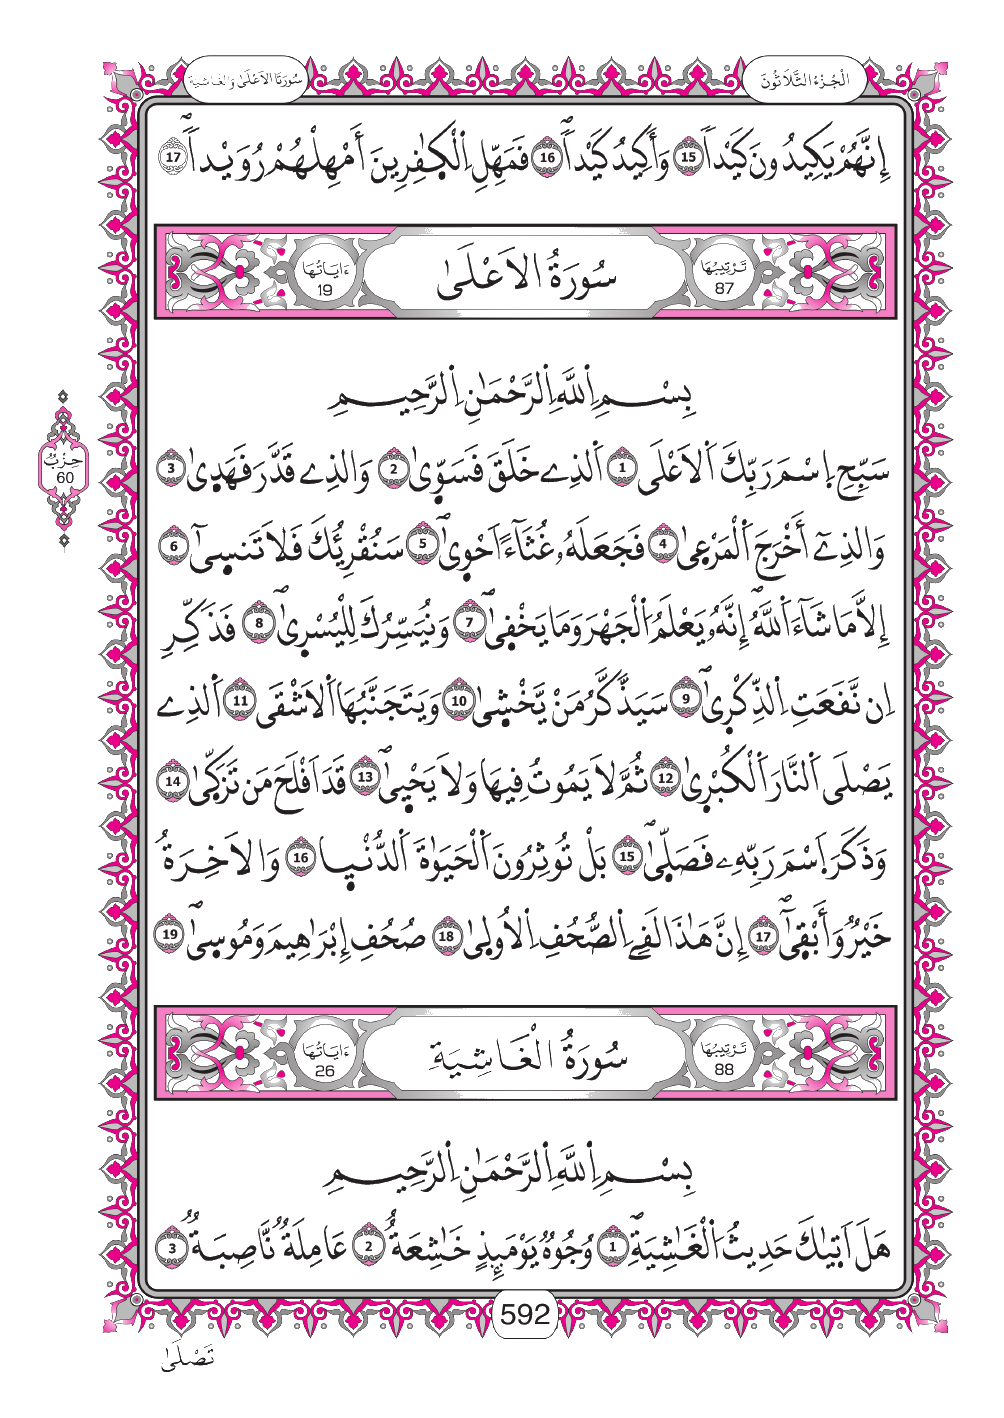 الْجُزْءُ الثَّلَاثُونَ
سُورَتَا الاَعْلَىٰ وَالغَاشِيَة
إِنَّهُمْ يَكِيدُونَ كَيْداٗ 15 وَأَكِيدُ كَيْداٗۖ 16 فَمَهِّلِ اِ۬لْكٰفِرِينَ أَمْهِلْهُمْ رُوَيْداٗۖ 17
تَرْتِيبُهَا 87
سُورَةُ الاَعْلَىٰ
ءَايَاتُهَا 19
بِسْمِ اِ۬للَّهِ اِ۬لرَّحْمَٰنِ اِ۬لرَّحِيمِ
سَبِّحِ اِ۪سْمَ رَبِّكَ اَ۬لَاعْلَى 1 اَ۬لذِے خَلَقَ فَسَوّ۪يٰ 2 وَالذِے قَدَّرَ فَهَد۪يٰ 3
وَالذِےٓ أَخْرَجَ اَ۬لْمَرْع۪يٰ 4 فَجَعَلَهُۥ غُثَآءً اَحْو۪يٰۖ 5 سَنُقْرِئُكَ فَلَا تَنس۪يٰٓ 6
إِلَّا مَا شَآءَ اَ۬للَّهُۖ إِنَّهُۥ يَعْلَمُ اُ۬لْجَهْرَ وَمَا يَخْف۪يٰۖ 7 وَنُيَسِّرُكَ لِلْيُسْر۪يٰۖ 8 فَذَكِّرِ
اِن نَّفَعَتِ اِ۬لذِّكْر۪يٰۖ 9 سَيَذَّكَّرُ مَنْ يَّخْش۪يٰ 10 وَيَتَجَنَّبُهَا اَ۬لَاشْقَى 11 اَ۬لذِے
يَصْلَى اَ۬لنَّارَ اَ۬لْكُبْر۪يٰ 12 ثُمَّ لَا يَمُوتُ فِيهَا وَلَا يَحْي۪يٰۖ 13 قَدَ اَفْلَحَ مَن تَزَكّ۪يٰ 14
وَذَكَرَ اَ۪سْمَ رَبِّهِۦ فَصَلّ۪يٰۖ 15 بَلْ تُوثِرُونَ اَ۬لْحَيَوٰةَ اَ۬لدُّنْي۪ا 16 وَالَاخِرَةُ
خَيْرٞ وَأَبْق۪يٰٓۖ 17 إِنَّ هَٰذَا لَفِے اِ۬لصُّحُفِ اِ۬لُاول۪يٰ 18 صُحُفِ إِبْرَٰهِيمَ وَمُوس۪يٰۖ 19
حِزْبُ 60
تَرْتِيبُهَا 88
سُورَةُ الْغَاشِيَةِ
ءَايَاتُهَا 26
بِسْمِ اِ۬للَّهِ اِ۬لرَّحْمَٰنِ اِ۬لرَّحِيمِ
هَلَ اَت۪يٰكَ حَدِيثُ اُ۬لْغَٰشِيَةِۖ 1 وُجُوهٞ يَوْمَئِذٍ خَٰشِعَةٌ 2 عَامِلَةٞ نَّاصِبَةٞ 3
592
تَصْلَىٰ